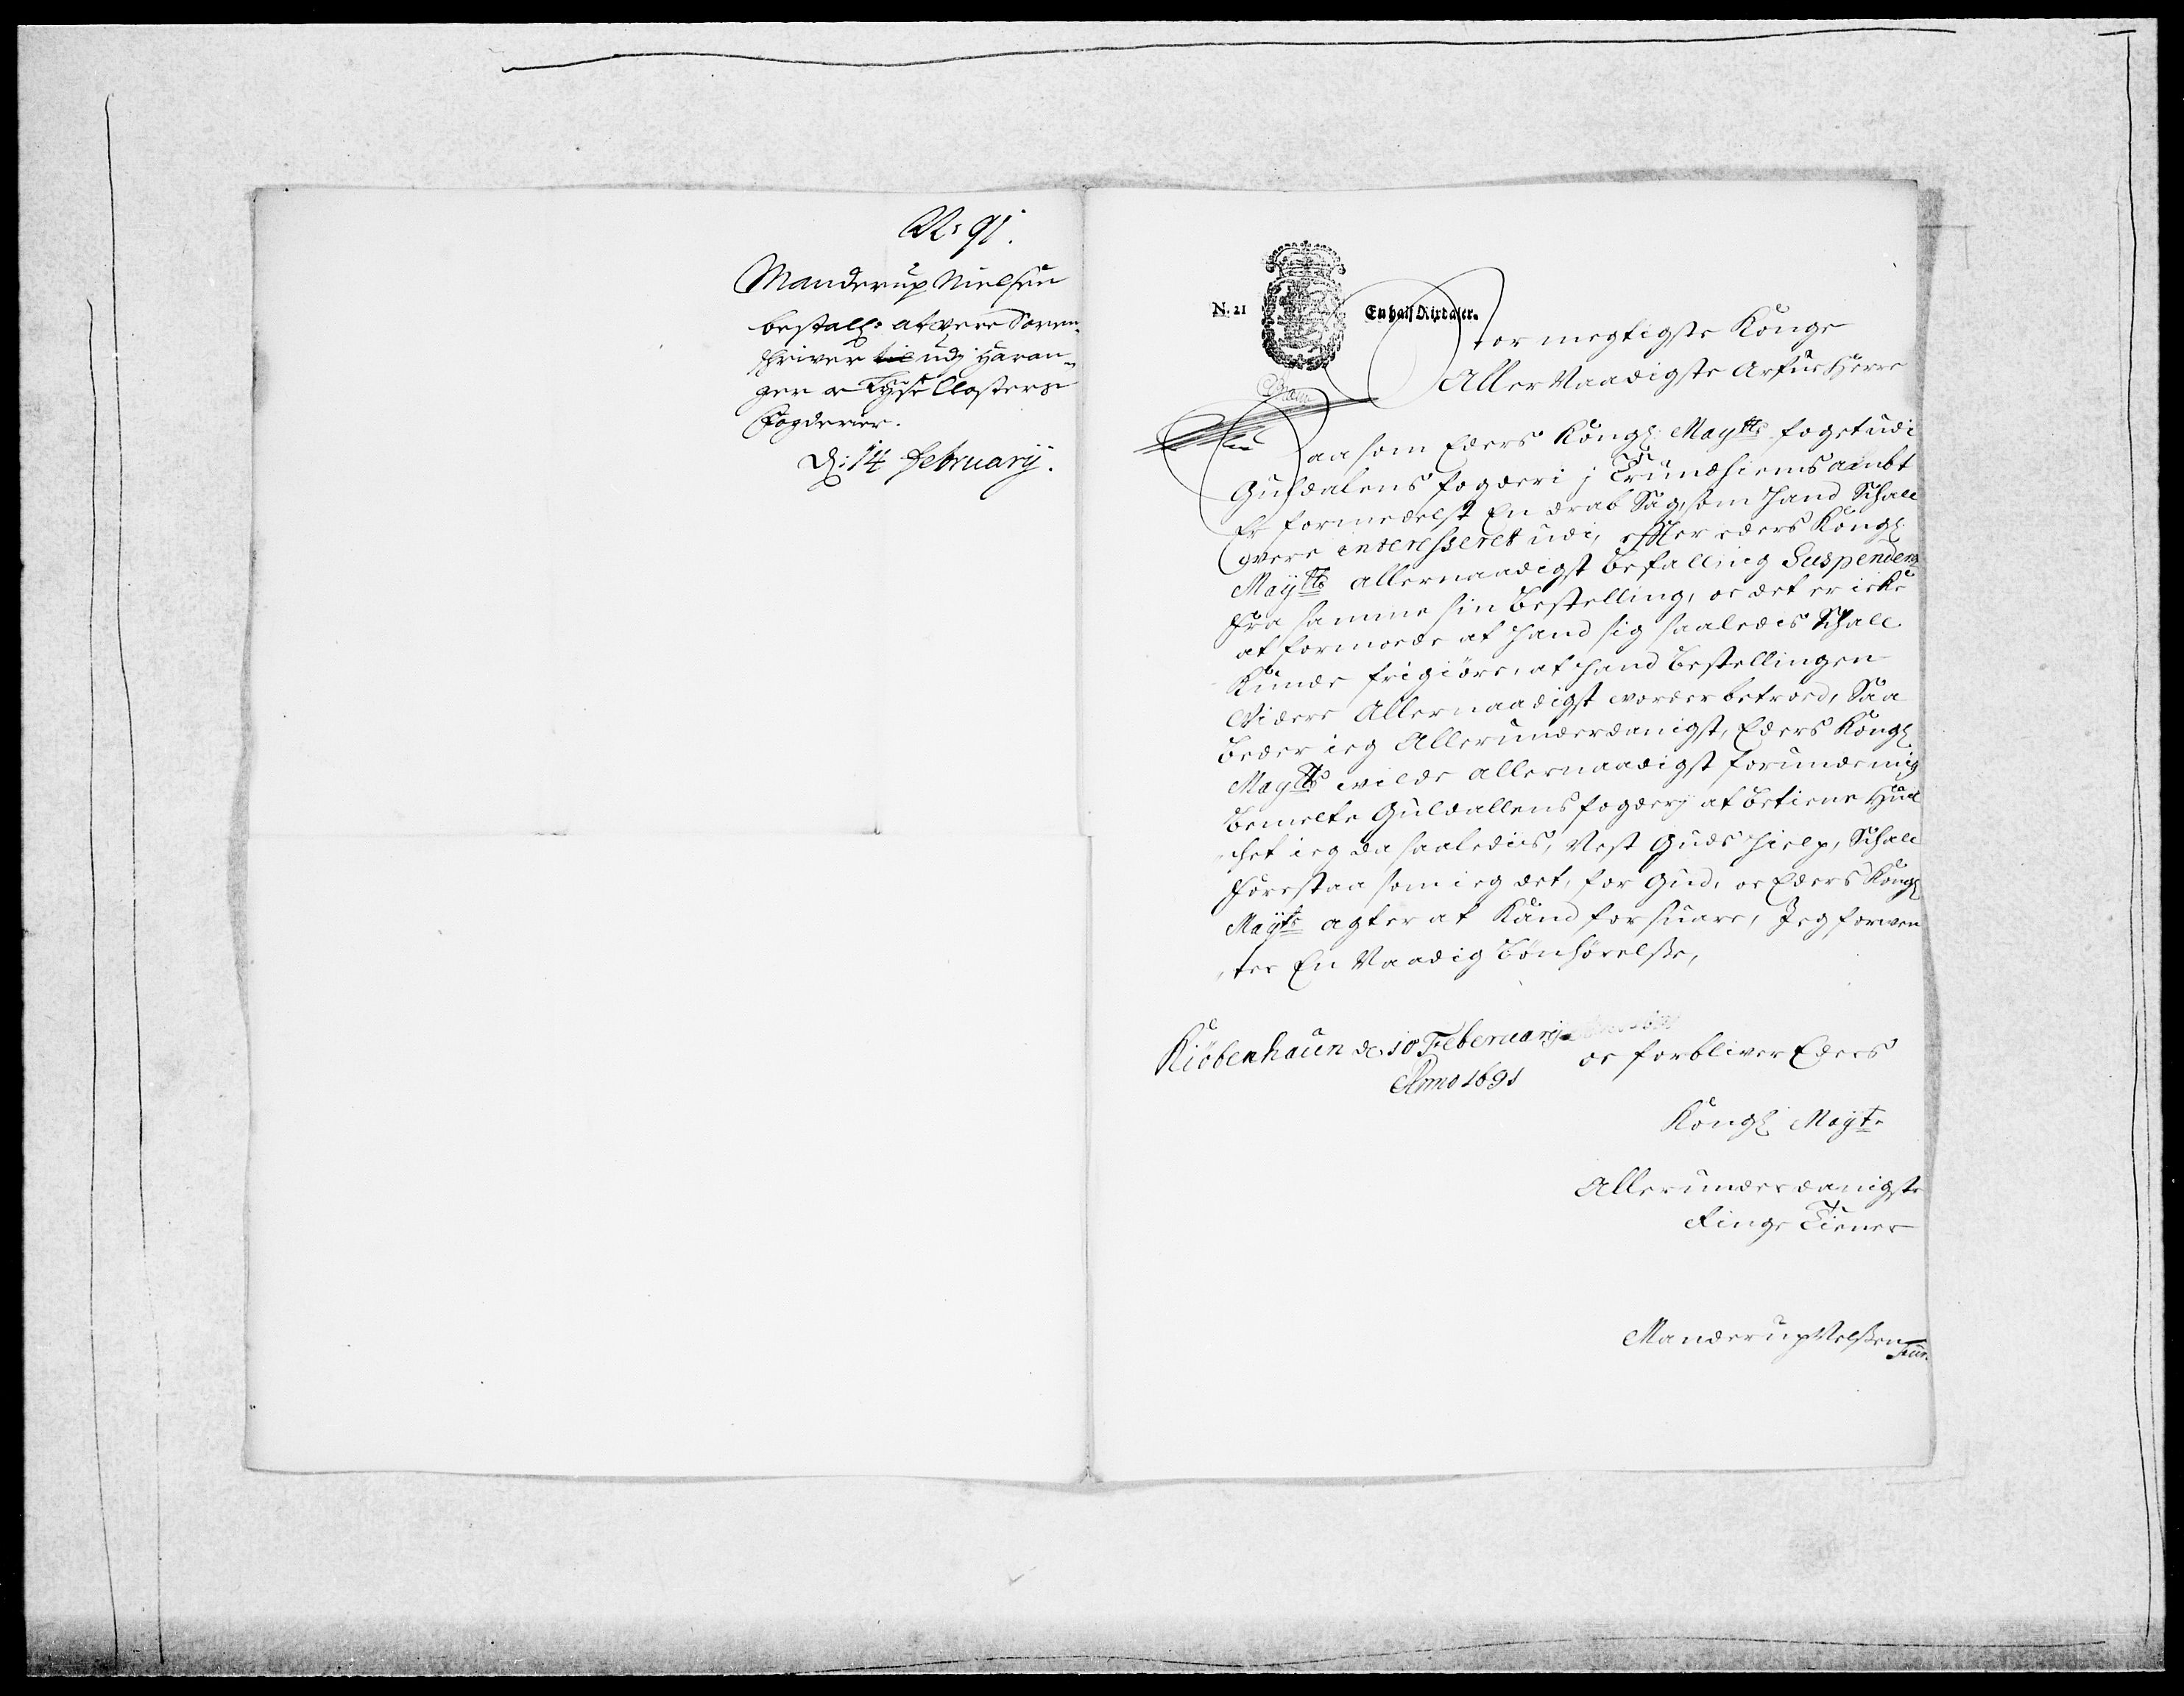 No: 91.
Manderup Nielsen
bestall: at were Soren-
schriver til udj Havan-
ger oc Closters
Fogderier.
D: 14 February.
N. 21
En half Rixdaler.
Stormegtigste Konge
Aller Naadigste Arfue Herre
Saasom Eders Kongl: Maytts fogetudi
Guldalens fogderi j Trundhiems ambt
Er formedelst En drab Sag, som hand Schall
were interesseret udi, effter eders Kongl:
Maytts allernaadigst befalling Suspenderet
fra samme sin bestelling, oc det er icke
at formode at hand sig saaledes Schall
Kunde frigiøre, at hand bestellingen
Videre Allernaadigst worder betroed, Saa
beder ieg Allerunderdanigst, Eders Kongl:
Maytts wilde allernaadigst forunde mig
bemelte Guldallens fogderj at betiene Huil
chet ieg da saaledis, Nest Guds hielp, Schall
forestaa som ieg det, for Gud, oc Eders Kongl
Mayts agter at Kand forsuare, Jeg forwen
ter En Naadig bønhørelsse,
Kiöbenhaun de 10 Februarij
Anno 1691
oc forbliver Eders
Kongl: Mayts
Allerunderdanigste
Ringe Tiener
Manderup Nelssen